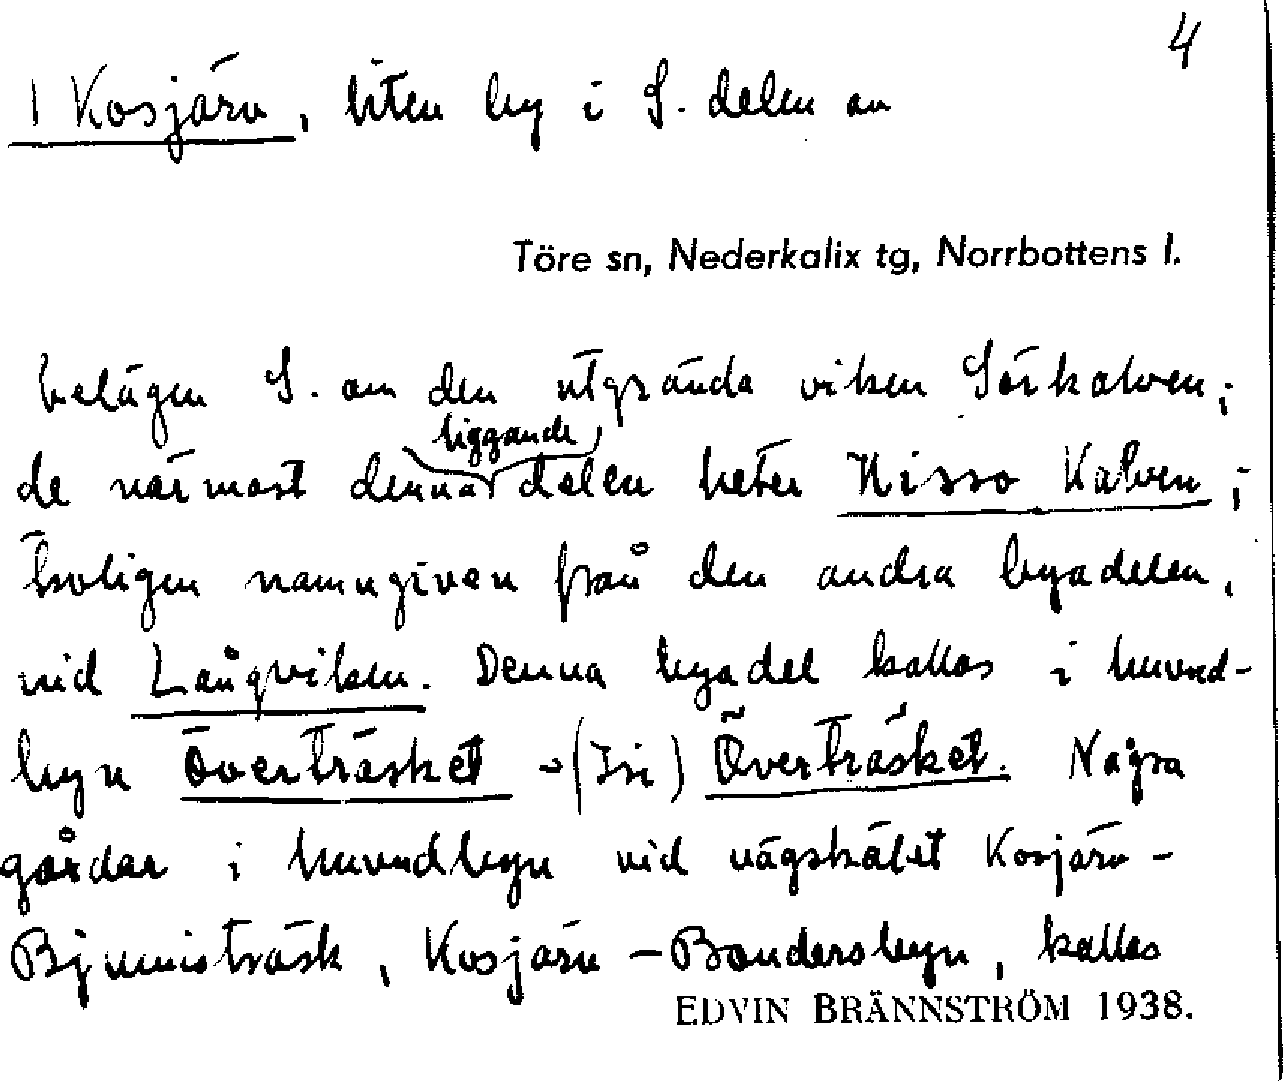 4
1 Kosjärv, liten by i S. delen av
Töre sn, Nederkalix tg, Norrbottens l.
belägen S. om den utgrända viken Sörkalven;
liggande
de närmast denna delen heter Nisso Kalven;
troligen namngiven från den andra byadelen,
vid Långviken. Denna byadel kallas i huvud-
byn Överträsket (Isi) Överträsket. Några
gårdar i huvudbyn vid vägskälet Kosjärv-
Bjumisträsk, Kosjärv-Bondersbyn, kallas
EDVIN BRÄNNSTRÖM 1938.